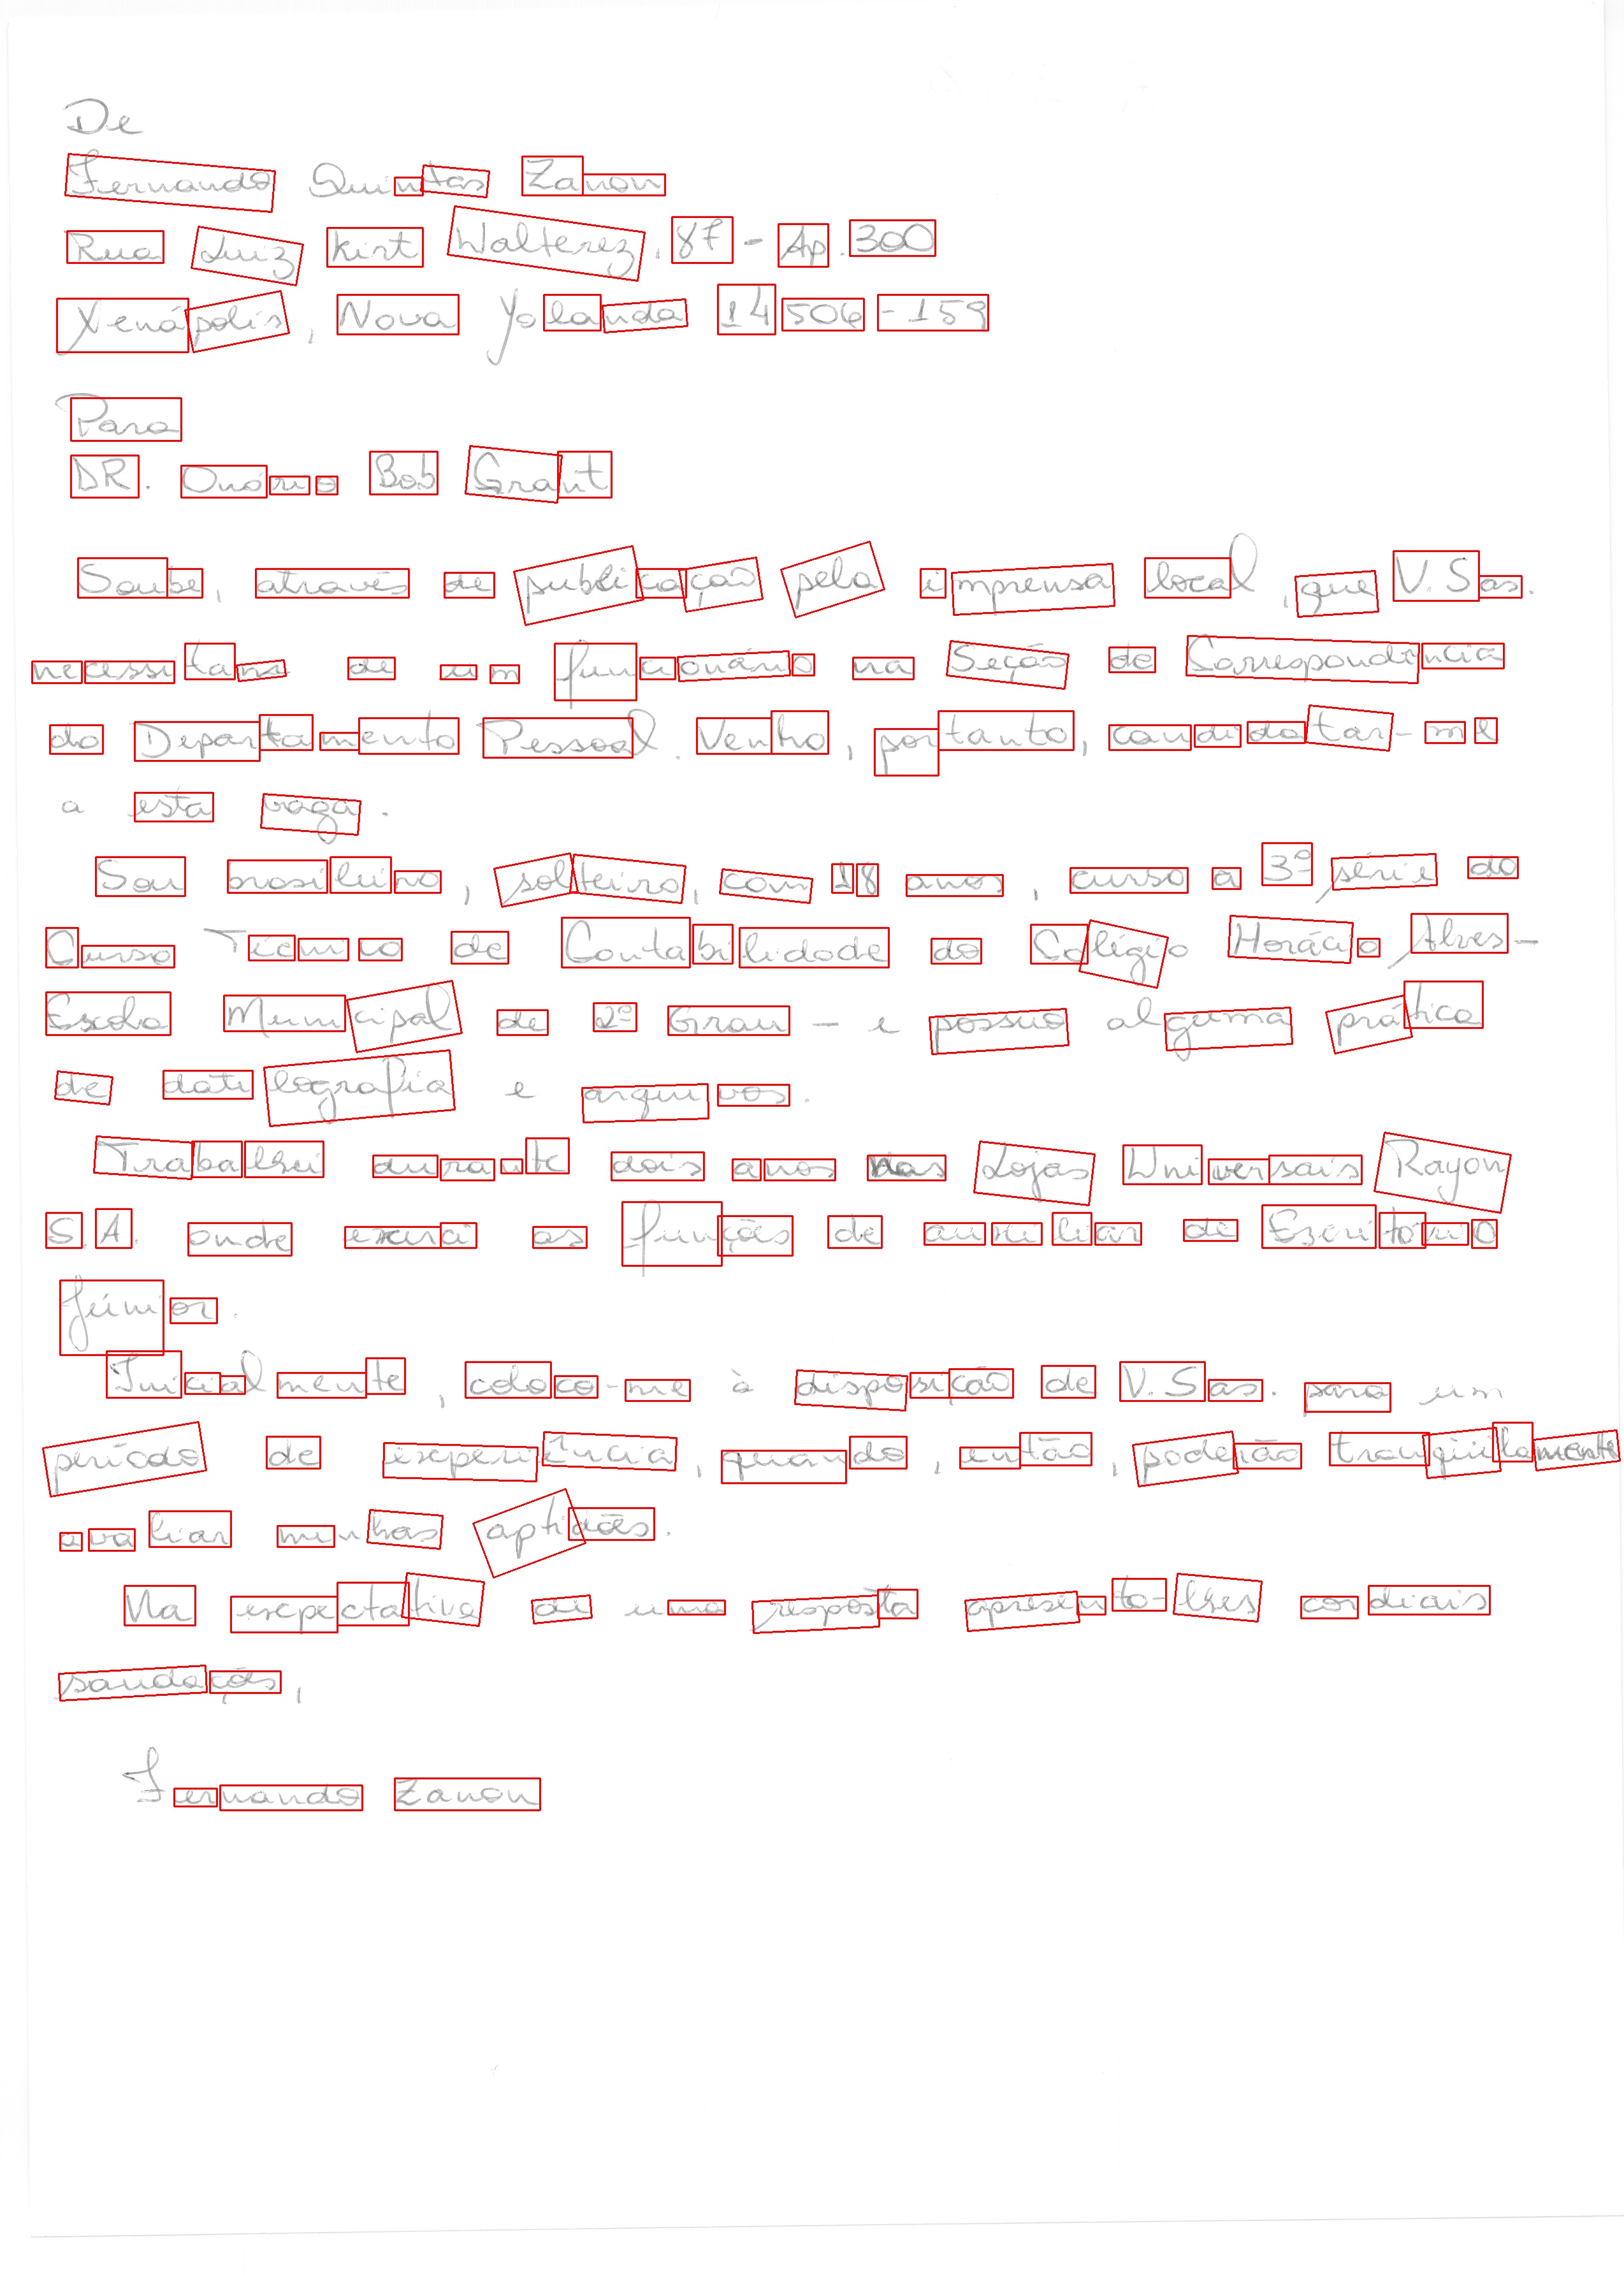 De
Fernando Quintas Zanon
Rua Luiz Kirt Walterez, 87 - Ap. 300
Xenápolis, Nova Yolanda 14506-159
Para
DR. Onório Bob Grant
Soube, através de publicação pela imprensa local, que V. Sas.
necessitam de um funcionário na Seção de Correspondência
do Departamento Pessoal. Venho, portanto, candidatar-me
a esta vaga.
Sou brasileiro, solteiro, com 18 anos, curso a 3ª série do
Curso Técnico de Contabilidade do Colégio Horácio Alves-
Escola Municipal de 2º Grau - e possuo alguma prática
de datilografia e arquivos.
Trabalhei durante dois anos nas Lojas Universais Rayon
S.A. onde exerci as funções de auxiliar de Escritório
Júnior.
Inicialmente, coloco-me à disposição de V. Sas. para um
período de experiência, quando, então, poderão tranqüilamente
avaliar minhas aptidões.
Na expectativa de uma resposta apresento-lhes cordiais
saudações,
Fernando Zanon